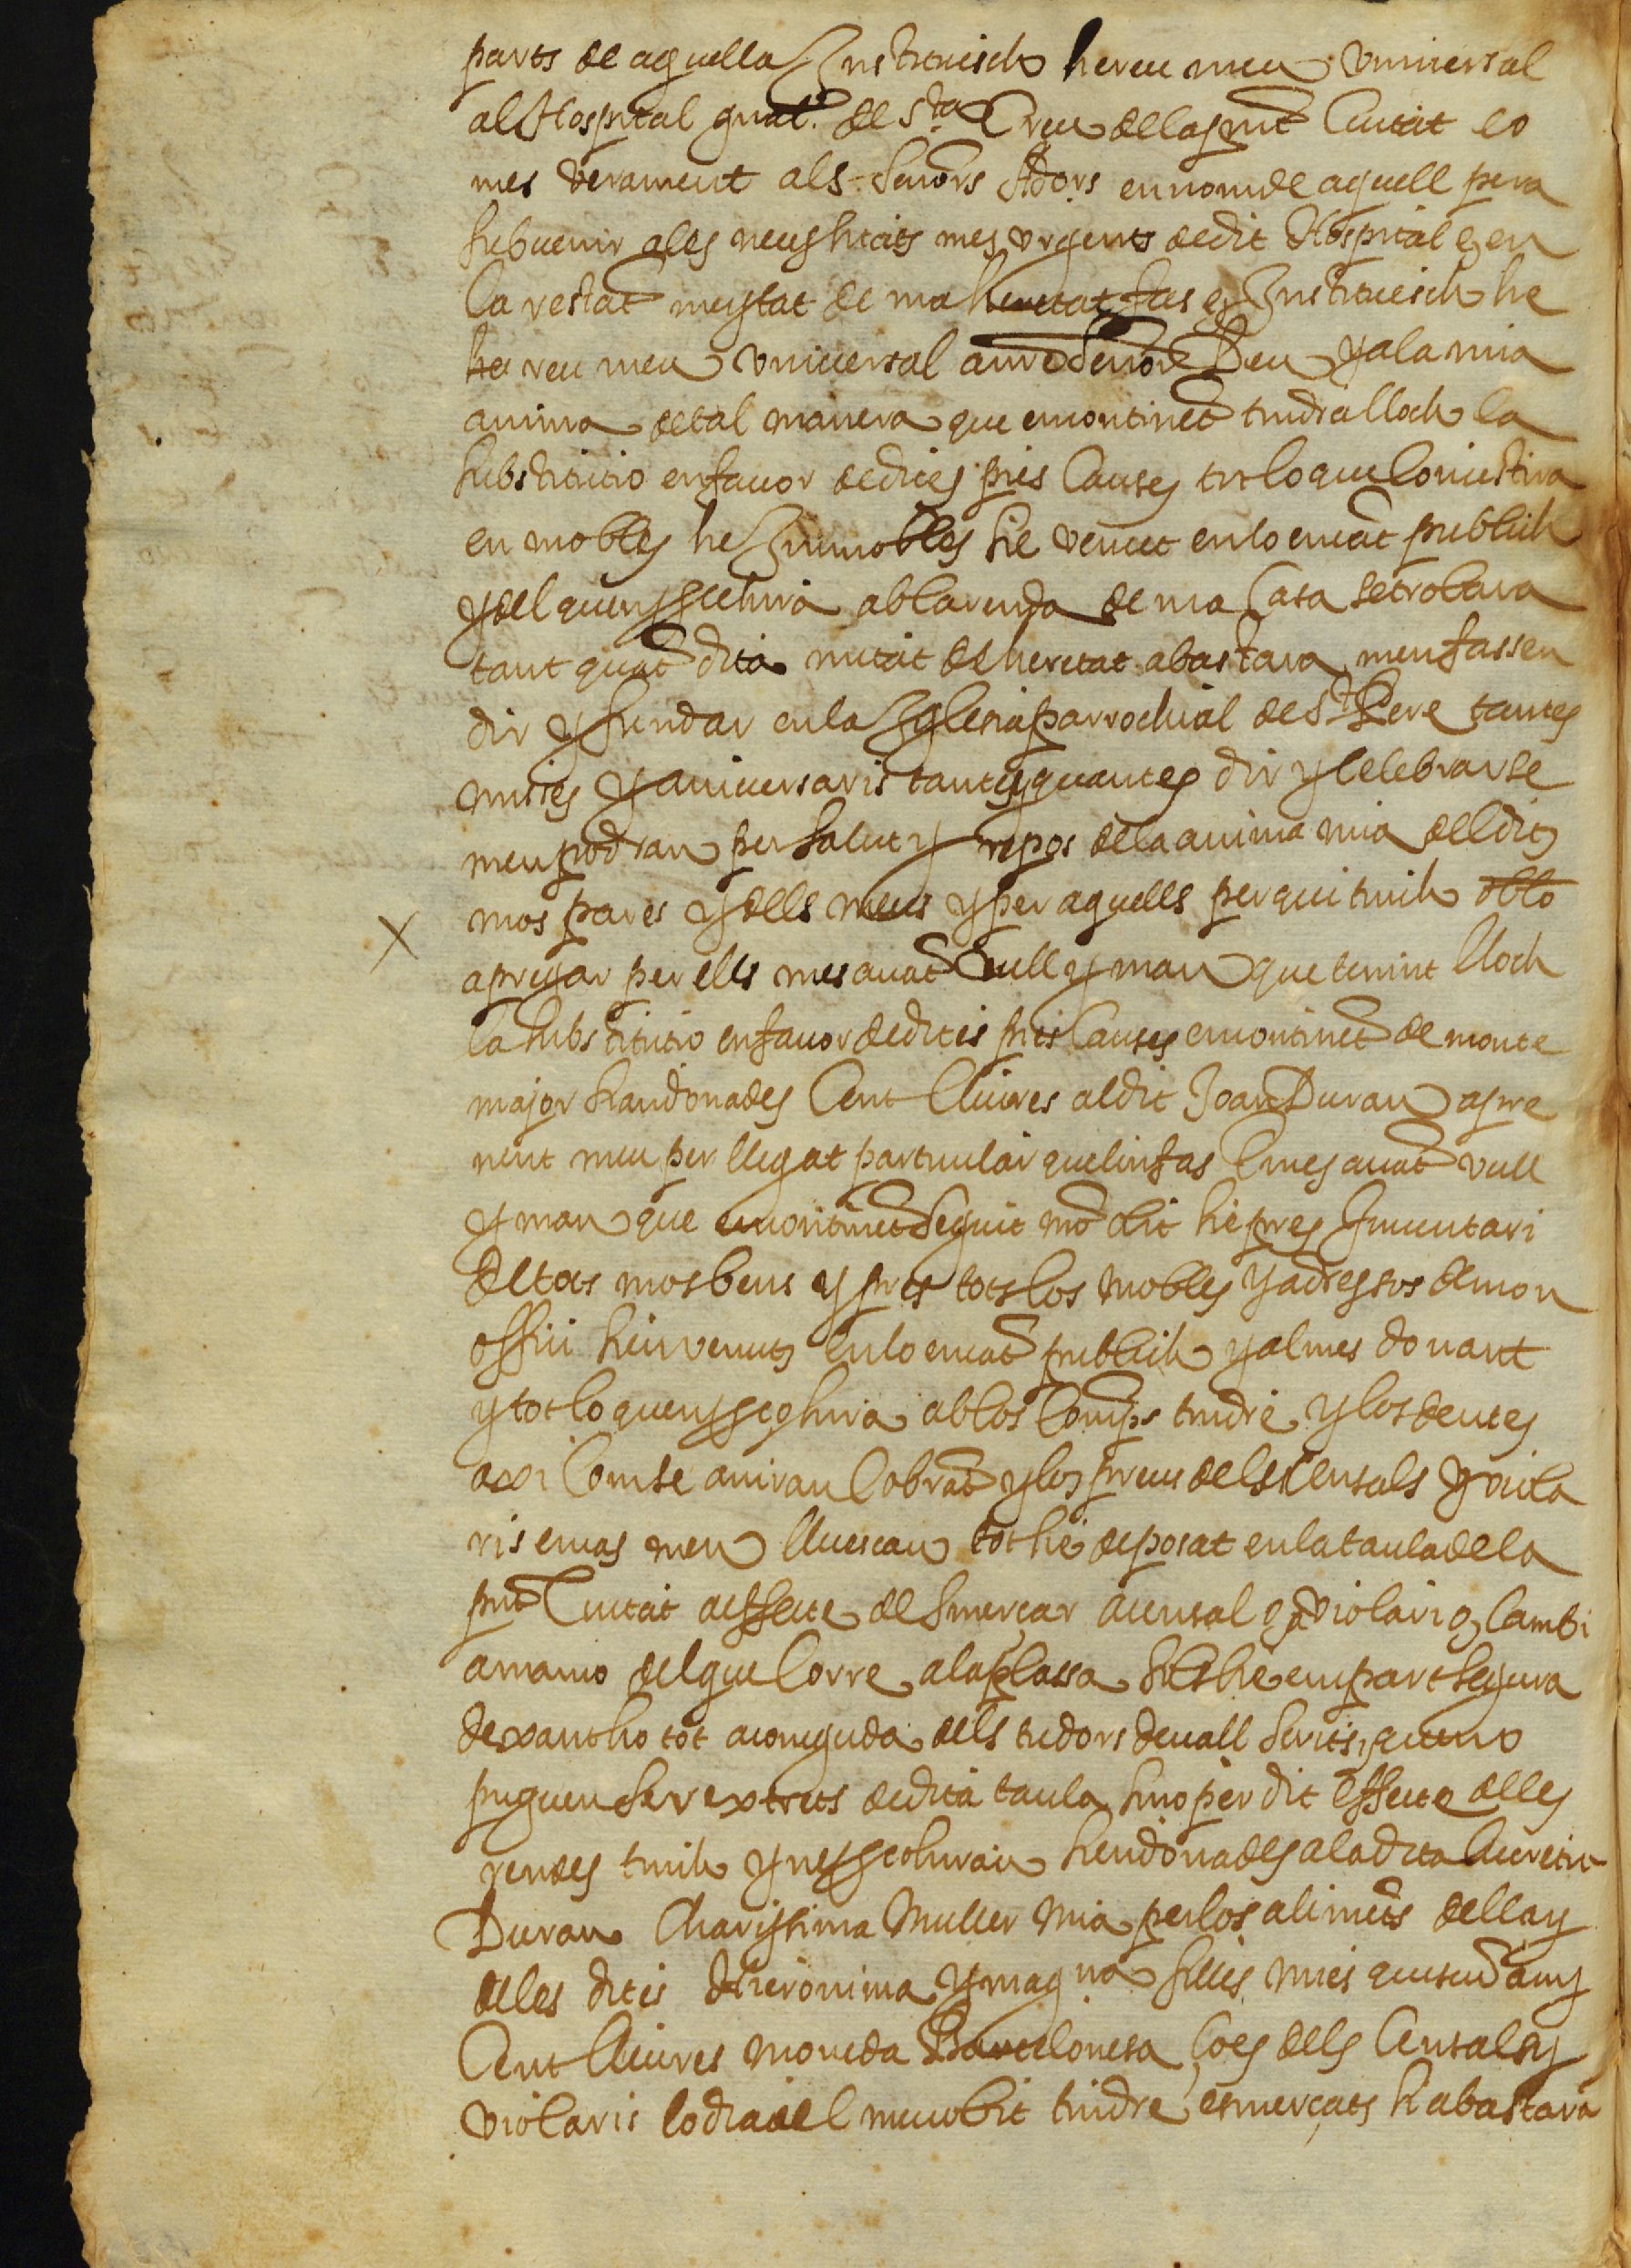 parts de aquella Instituesch hereu meu universal
al Hospital gnal. de Sta Creu de la pnt Ciutat eo
mes verament als Senors Ad.ors en nom de aquell pera
subvenir a les necessitats mes urgents de dit Hospital e, en
la restat meytat de ma heretat fas e, Instituesch he
hereu meu universal a nre Senor Deu y a la mia
anima de tal manera que encontinet tindra lloch la
substitutio en favor de dites pies Causes tot lo que Consistira
en mobles he Immobles sie venut en lo encat publich
y del que ysschira ab la venda de ma Casa se trobara
tant quat dita mitat de heretat abastara men fassen
dir y fundar en la Iglesia parrochial de St Pere tantes
misses y aniversaris tantes quantes dir y Celebrar se
men podran per salut y repos de la anima mia dells dits
mos pares y dells meus y per aquells per qui tinch oblo
a pregar per ells mes avat Vull y man que tenint lloch
la substitutio en favor de dites pies Causes encontinet de monte
major sian donades Cent lliures al dit Joan Duran apre
nent meu per llegat particular que lin fas E mes avat vull
y man que encontinet seguit mo obit sie pres Inventari
de tots mos bens y pres tots los mobles y adressos de mon
offici sien venuts en lo encat publich y al mes donant
y tot lo que ysschira ab los Comps. tindre y los deutes
axi Com se aniran Cobrat y los preus dels Censals y viola
ris en cas men lluescan tot sie deposat en la taula de la
pnt Ciutat a effecte de smerçar a censal o, violari o, Cambi
a marno del que Corre a la plassa sols sie en part segura
dexantho tot a coneguda dels tudors devall scrits, que no
puguen ser extrets de dita taula sino per dit effecte de les
rendes tinch y nysschiran sien donades a la dita
Duran Charissima Muller mia per los alimets della y
de les dites Hieronima y magna filles mies quiscu any
Cent lliures moneda Barcelonesa, ço es dels Censals y
violaris lo dia del meu obit tindre esmerçats si abastara